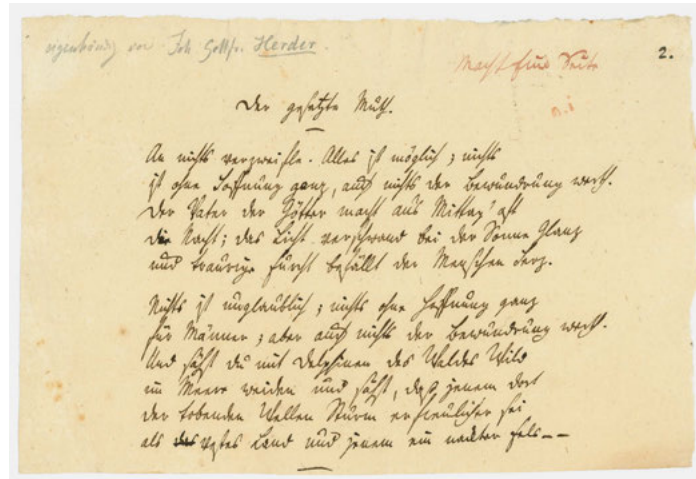 eigenhändig von Joh. Gottfr. Herder.
Macht Eine Seite
2.
Der gesetzte Muth.
An nichts verzweifle. Alles ist möglich; nichts
ist ohne Hoffnung ganz, auch nichts der Bewundrung werth.
Der Vater der Götter macht aus Mittag' oft
die Nacht; das Licht verschwand bei der Sonne Glanz
und traurige Furcht befällt der Menschen Herz.
Nichts ist unglaublich; nichts ohne Hoffnung ganz
für Männer; aber auch nichts der Bewundrung werth.
Und sähst du mit Delphinen des Waldes Wild
im Meere weiden und sähst, daß jenem dort
der tobenden Wellen Sturm erfreulicher sei
als vestes Land und jenem ein nackter Fels--